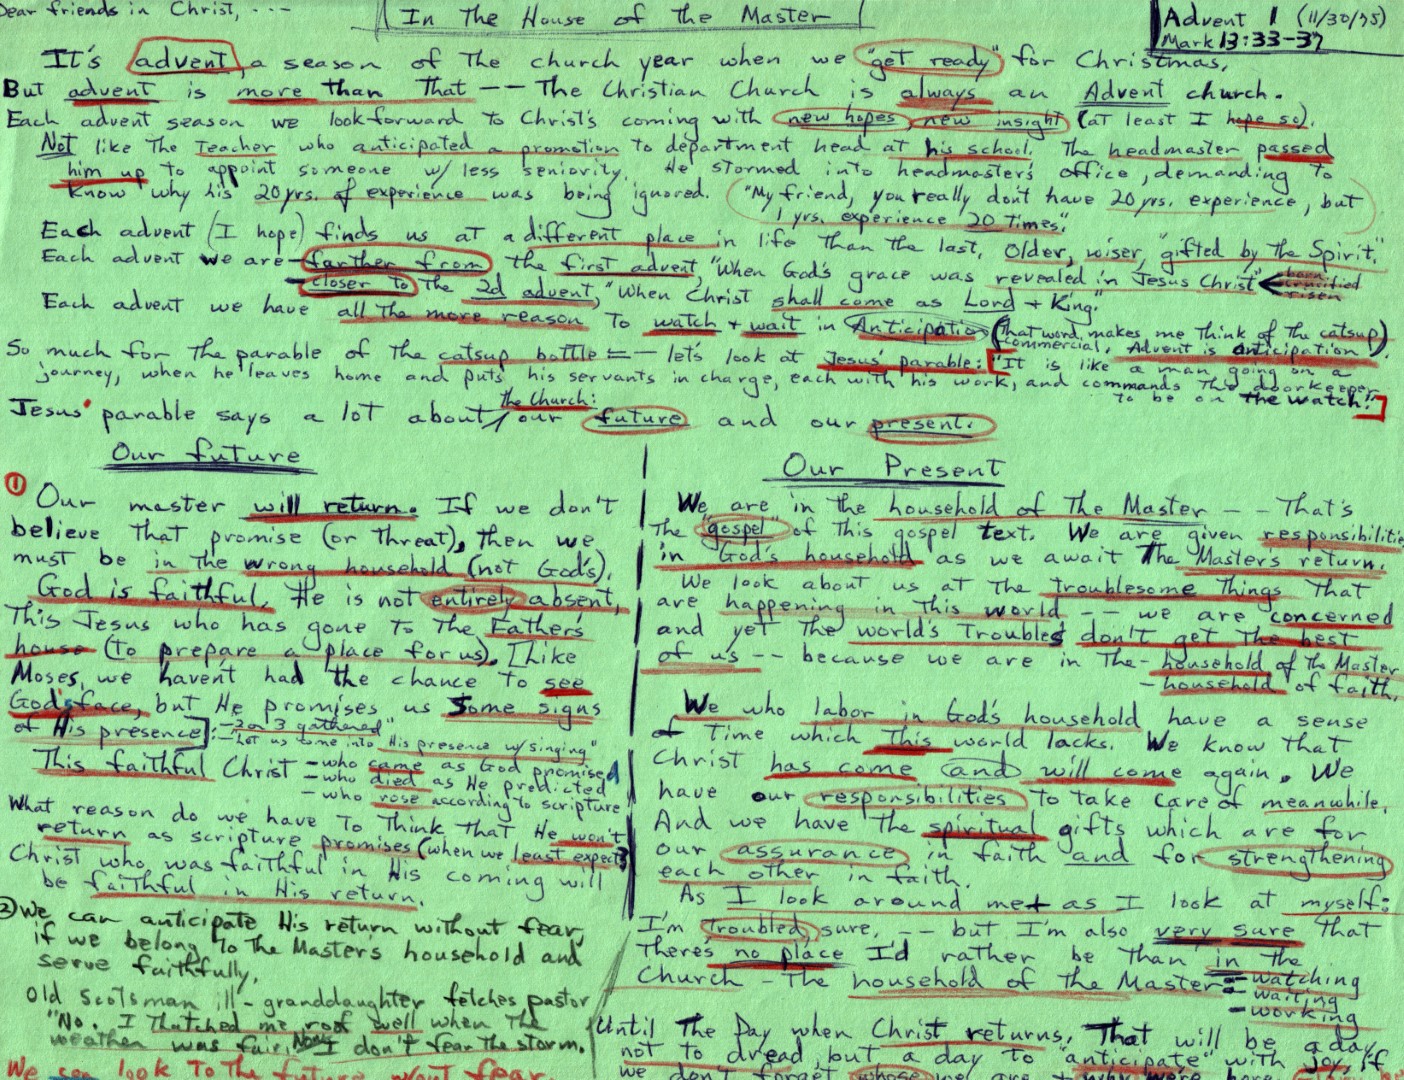 Dear friends in Christ, ---
In The House of the Master
Advent 1 (11/30/75)
Mark 13:33-37
It's advent, a season of the church year when we "get ready" for Christmas,
But advent is more than That -- The Christian Church is always an Advent church.
Each advent season we look forward to Christ's coming with new hopes, new insight (at least I hope so).
Not like The Teacher who anticipated a promotion to department head at his school. The headmaster passed
him up to appoint someone w/ less seniority. He stormed into headmaster's office, demanding to
know why his 20 yrs. of experience was being ignored. "My friend, you really don't have 20 yrs. experience, but
1 yrs. experience 20 Times."
Each advent (I hope) finds us at a different place in life Than the last, Older, wiser, "gifted by the Spirit."
Each advent we are - farther from the first advent, "When God's grace was revealed in Jesus Christ" born crucified risen
- closer to The 2d advent, "When Christ shall come as Lord + King."
Each advent we have all The more reason To watch + wait in Anticipation (That word makes me Think of The catsup
commercial. Advent is anticipation)
So much for The parable of The catsup bottle -- let's look at Jesus' parable: ["It is like a man going on a
journey, when he leaves home and puts his servants in charge, each with his work, and commands The doorkeeper
to be on The watch."]
Jesus' parable says a lot about the Church: our future and our present.
Our future
① Our master will return. If we don't
believe That promise (or Threat), Then we
must be in the wrong household (not God's).
God is faithful. He is not entirely absent,
This Jesus who has gone To The Father's
house (to prepare a place for us). [Like
Moses, we haven't had the chance to see
God's face, but He promises us some signs
of His presence]: - "2 or 3 gathered"
- "Let us come into His presence w/ singing"
This faithful Christ - who came as God promised
- who died as He predicted
- who rose according to scripture
What reason do we have To Think That He won't
return as scripture promises (when we least expect)
Christ who was faithful in His coming will
be faithful in His return.
② We can anticipate His return without fear,
if we belong To The Master's household and
serve faithfully.
Old Scotsman ill - granddaughter fetches pastor
"No. I Thatched me roof well when The
weather was fair. Now I don't fear The storm.
We can look To The future w/out fear.
Our Present
We are in the household of The Master -- That's
The "gospel" of This gospel text. We are given responsibilities
in God's household as we await The Master's return.
We look about us at The Troublesome Things That
are happening in This world -- we are concerned
and yet The world's Troubles don't get The best
of us -- because we are in The - household of The Master
- household of faith.
We who labor in God's household have a sense
of Time which This world lacks. We know that
Christ has come and will come again. We
have our responsibilities To take care of meanwhile.
And we have The spiritual gifts which are for
our assurance in faith and for strengthening
each other in faith.
As I look around me + as I look at myself:
I'm Troubled, sure, -- but I'm also very sure That
There's no place I'd rather be Than in The
Church - The household of The Master - watching
- waiting
- working
Until The Day when Christ returns. That will be a day
not to dread, but a day to "anticipate" with joy, if
we don't forget whose we are + why we're here